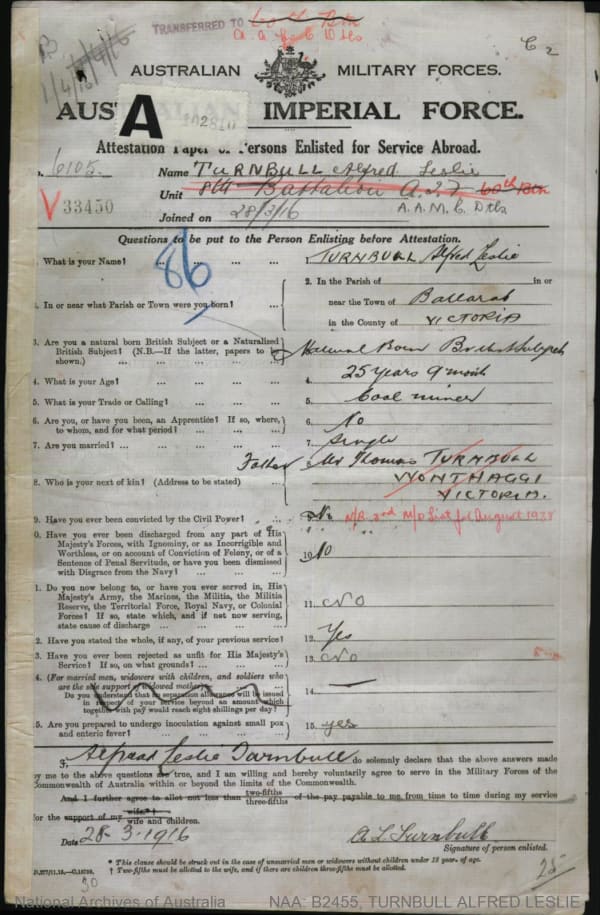 TRANSFERRED TO
A.A.M.C Dtls
C 2
AUSTRALIAN MILITARY FORCES.
AUS A IMPERIAL FORCE.
Attestation Paper of Persons Enlisted for Service Abroad.
6105. Name TURNBULL Alfred Leslie
V 33450 Unit 8th Battalion 60th Bttn
A.A.M.C. Dtls
Joined on 28/3/16
Questions to be put to the Person Enlisting before Attestation.
86
What is your Name? ... ... ... 1. TURNBULL Alfred Leslie
In or near what Parish or Town were you born? ...
2. In the Parish of in or
near the Town of Ballarat
in the County of VICTORIA
3. Are you a natural born British Subject or a Naturalized
British Subject? (N.B.—If the latter, papers to be
shown.) ... ... ... ...
Natural Born British Subject
4. What is your Age? ... ... ... 4. 25 years 9 month
5. What is your Trade or Calling? ... ... 5. Coal miner
6. Are you, or have you been, an Apprentice? If so, where,
to whom, and for what period? ... ... ...
6. No
7. Are you married? ... ... ... ... 7. Single
8. Who is your next of kin? (Address to be stated) ...
Father Mr Thomas TURNBULL
WONTHAGGI
VICTORIA.
9. Have you ever been convicted by the Civil Power? ... 9. No
N/R 2nd M/D List for August 1928
0. Have you ever been discharged from any part of His
Majesty's Forces, with Ignominy, or as Incorrigible and
Worthless, or on account of Conviction of Felony, or of a
Sentence of Penal Servitude, or have you been dismissed
with Disgrace from the Navy? ... ... ...
10. No
1. Do you now belong to, or have you ever served in, His
Majesty's Army, the Marines, the Militia, the Militia
Reserve, the Territorial Force, Royal Navy, or Colonial
Forces? If so, state which, and if not now serving,
state cause of discharge ... ... ...
11. No
2. Have you stated the whole, if any, of your previous service? 12. Yes
3. Have you ever been rejected as unfit for His Majesty's
Service? If so, on what grounds? ... ... ...
13. No
4. (For married men, widowers with children, and soldiers who
are the sole support of widowed mother)—
Do you understand that no separation allowance will be issued
in respect of your service beyond an amount which
together with pay would reach eight shillings per day?
14. —
5. Are you prepared to undergo inoculation against small pox
and enteric fever? ... ... ... ...
15. yes
I, Alfread Leslie Turnbull do solemnly declare that the above answers made
by me to the above questions are true, and I am willing and hereby voluntarily agree to serve in the Military Forces of the
Commonwealth of Australia within or beyond the limits of the Commonwealth.
And I further agree to allot not less than two-fifths three-fifths of the pay payable to me from time to time during my service
for the support of my wife* wife and children.
Date 28-3-1916
A L Turnbull
Signature of person enlisted.
25
* This clause should be struck out in the case of unmarried men or widowers without children under 18 year. of age.
† Two-fifths must be allotted to the wife, and if there are children three-fifths must be allotted.
National Archives of Australia
NAA: B2455, TURNBULL ALFRED LESLIE